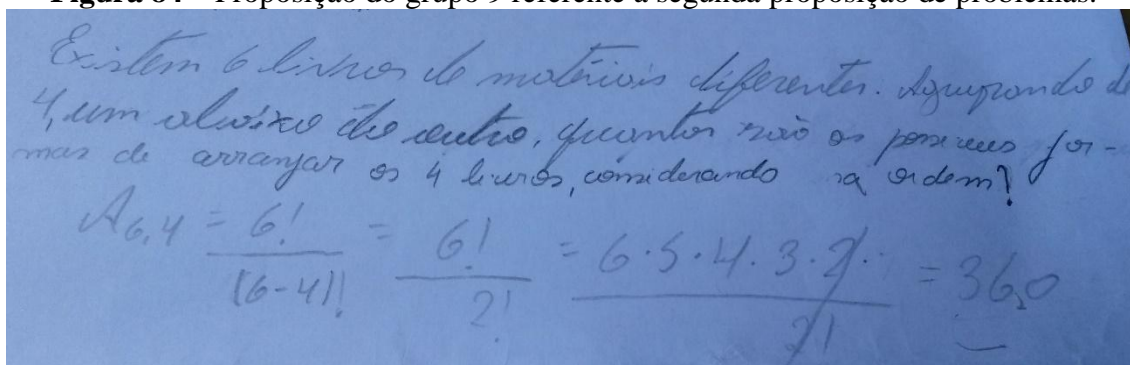 Figura 84 – Proposição do grupo 9 referente à segunda proposição de problemas.
Existem 6 livros de matérias diferentes. Agrupando de
4, um abaixo do outro, quantos são as possíveis for-
mas de arranjar os 4 livros, considerando a ordem?
A6,4 = 6!/(6-4)! = 6!/2! = 6·5·4·3·2!/2! = 360